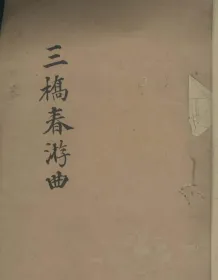 三橋春游曲